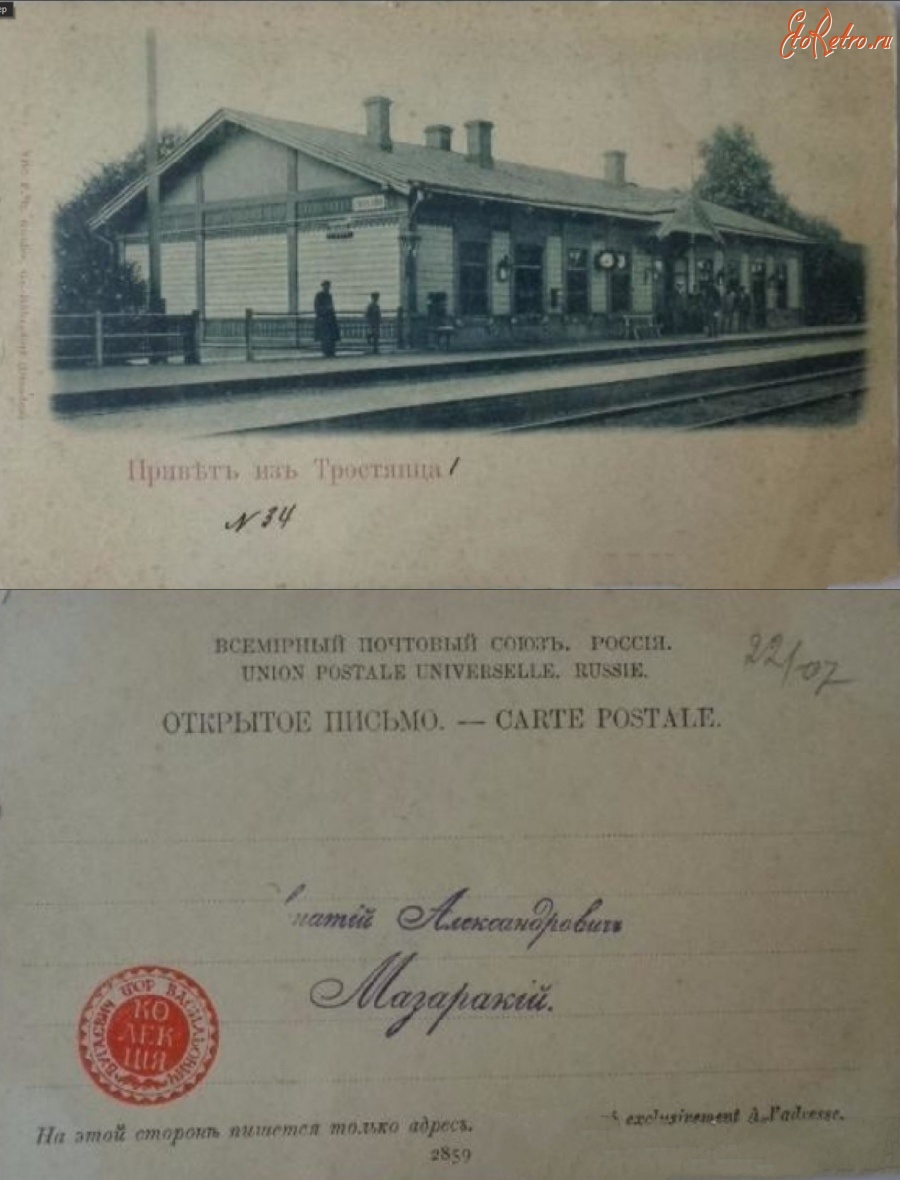 EtoRetro.ru
Привѣтъ изъ Тростянца
N 34
ВСЕМІРНЫЙ ПОЧТОВЫЙ СОЮЗЪ. РОССІЯ.
UNION POSTALE UNIVERSELLE. RUSSIE.
22/07
ОТКРЫТОЕ ПИСЬМО. — CARTE POSTALE.
Александровичъ
Мазаракій.
ВАСИЛЬОВИЧ
КО
ЛЕК
ЦІЯ
На этой сторонѣ пишется только адресъ.
exclusivement à l'adresse.
2859